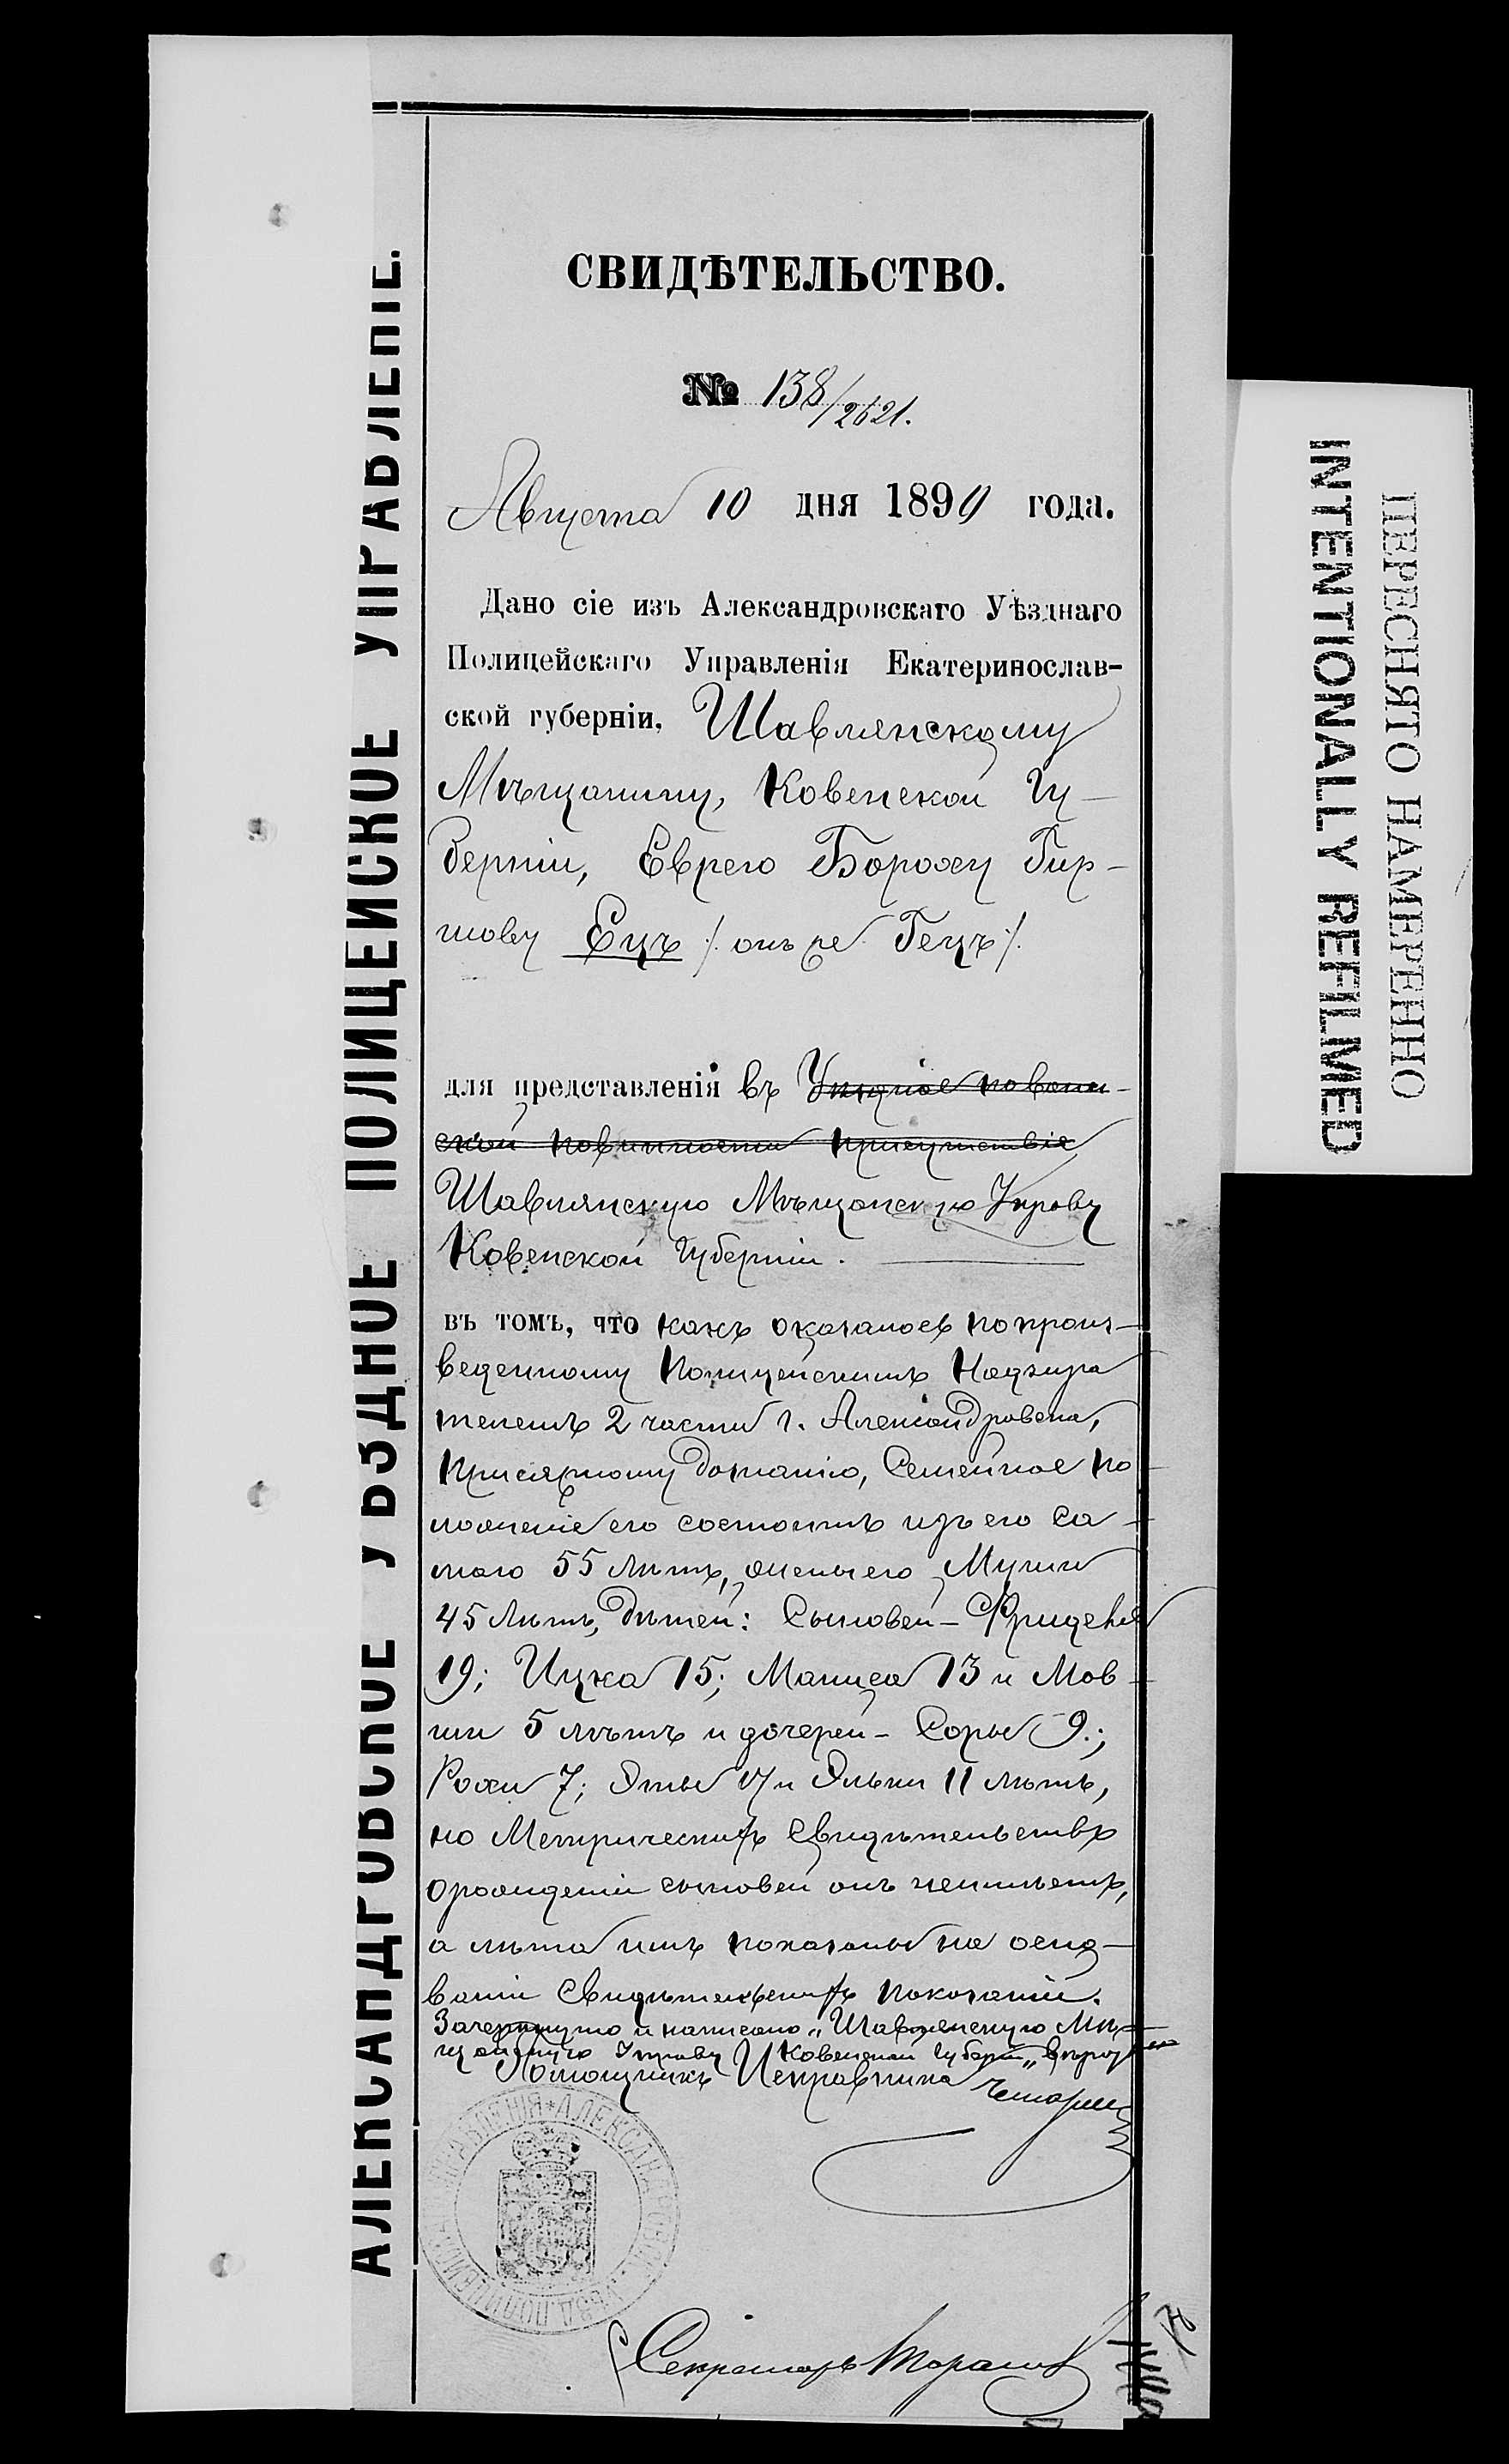 АЛЕКСАНДРОВСКОЕ УѢЗДНОЕ ПОЛИЦЕЙСКОЕ УПРАВЛЕНІЕ.
СВИДѢТЕЛЬСТВО.
№ 138/2621.
Августа 10 дня 1899 года.
Дано сіе изъ Александровскаго Уѣзднаго
Полицейскаго Управленія Екатеринослав-
ской губерніи, Шавлянскому
Мѣщанину, Ковенской Гу-
берніи, Еврею Бороху Гир-
шову Ецъ /. онъ же Гецъ ./.
для представленія въ Уѣздное по воин-
ской повинности присутствіе
Шавлянскую Мѣщанскую Управу
Ковенской Губерніи.
въ томъ, что какъ оказалось по произ-
веденному Полицейскимъ Надзира
телемъ 2 части г. Александровска,
присяжному дознанію, Семейное по
ложеніе его состоитъ изъ его са-
маго 55 лѣтъ, жены его Мушки
45 лѣтъ, дѣтей: Сыновей -
19; Ицка 15; Маниса 13 и Мов-
ши 5 лѣтъ и дочерей - Соры 9.;
Рохи 7; Эты 17 и Эльки 11 лѣтъ,
но Метрическихъ Свидѣтельствъ
о рожденіи сыновей онъ неимѣетъ,
а лѣта имъ показаны на осно-
ваніи Свидѣтельскихъ показаній.
Зачеркнуто и написано „Шавлянскую Мѣ-
щанскую Управу Ковенской Губерніи„
Помощникъ Исправника
АЛЕКСАНДРОВСК. УѢЗД. ПОЛИЦЕЙСК. УПРАВЛЕНІЯ
Секретарь
ПЕРЕСНЯТО НАМЕРЕННО
INTENTIONALLY REFILMED